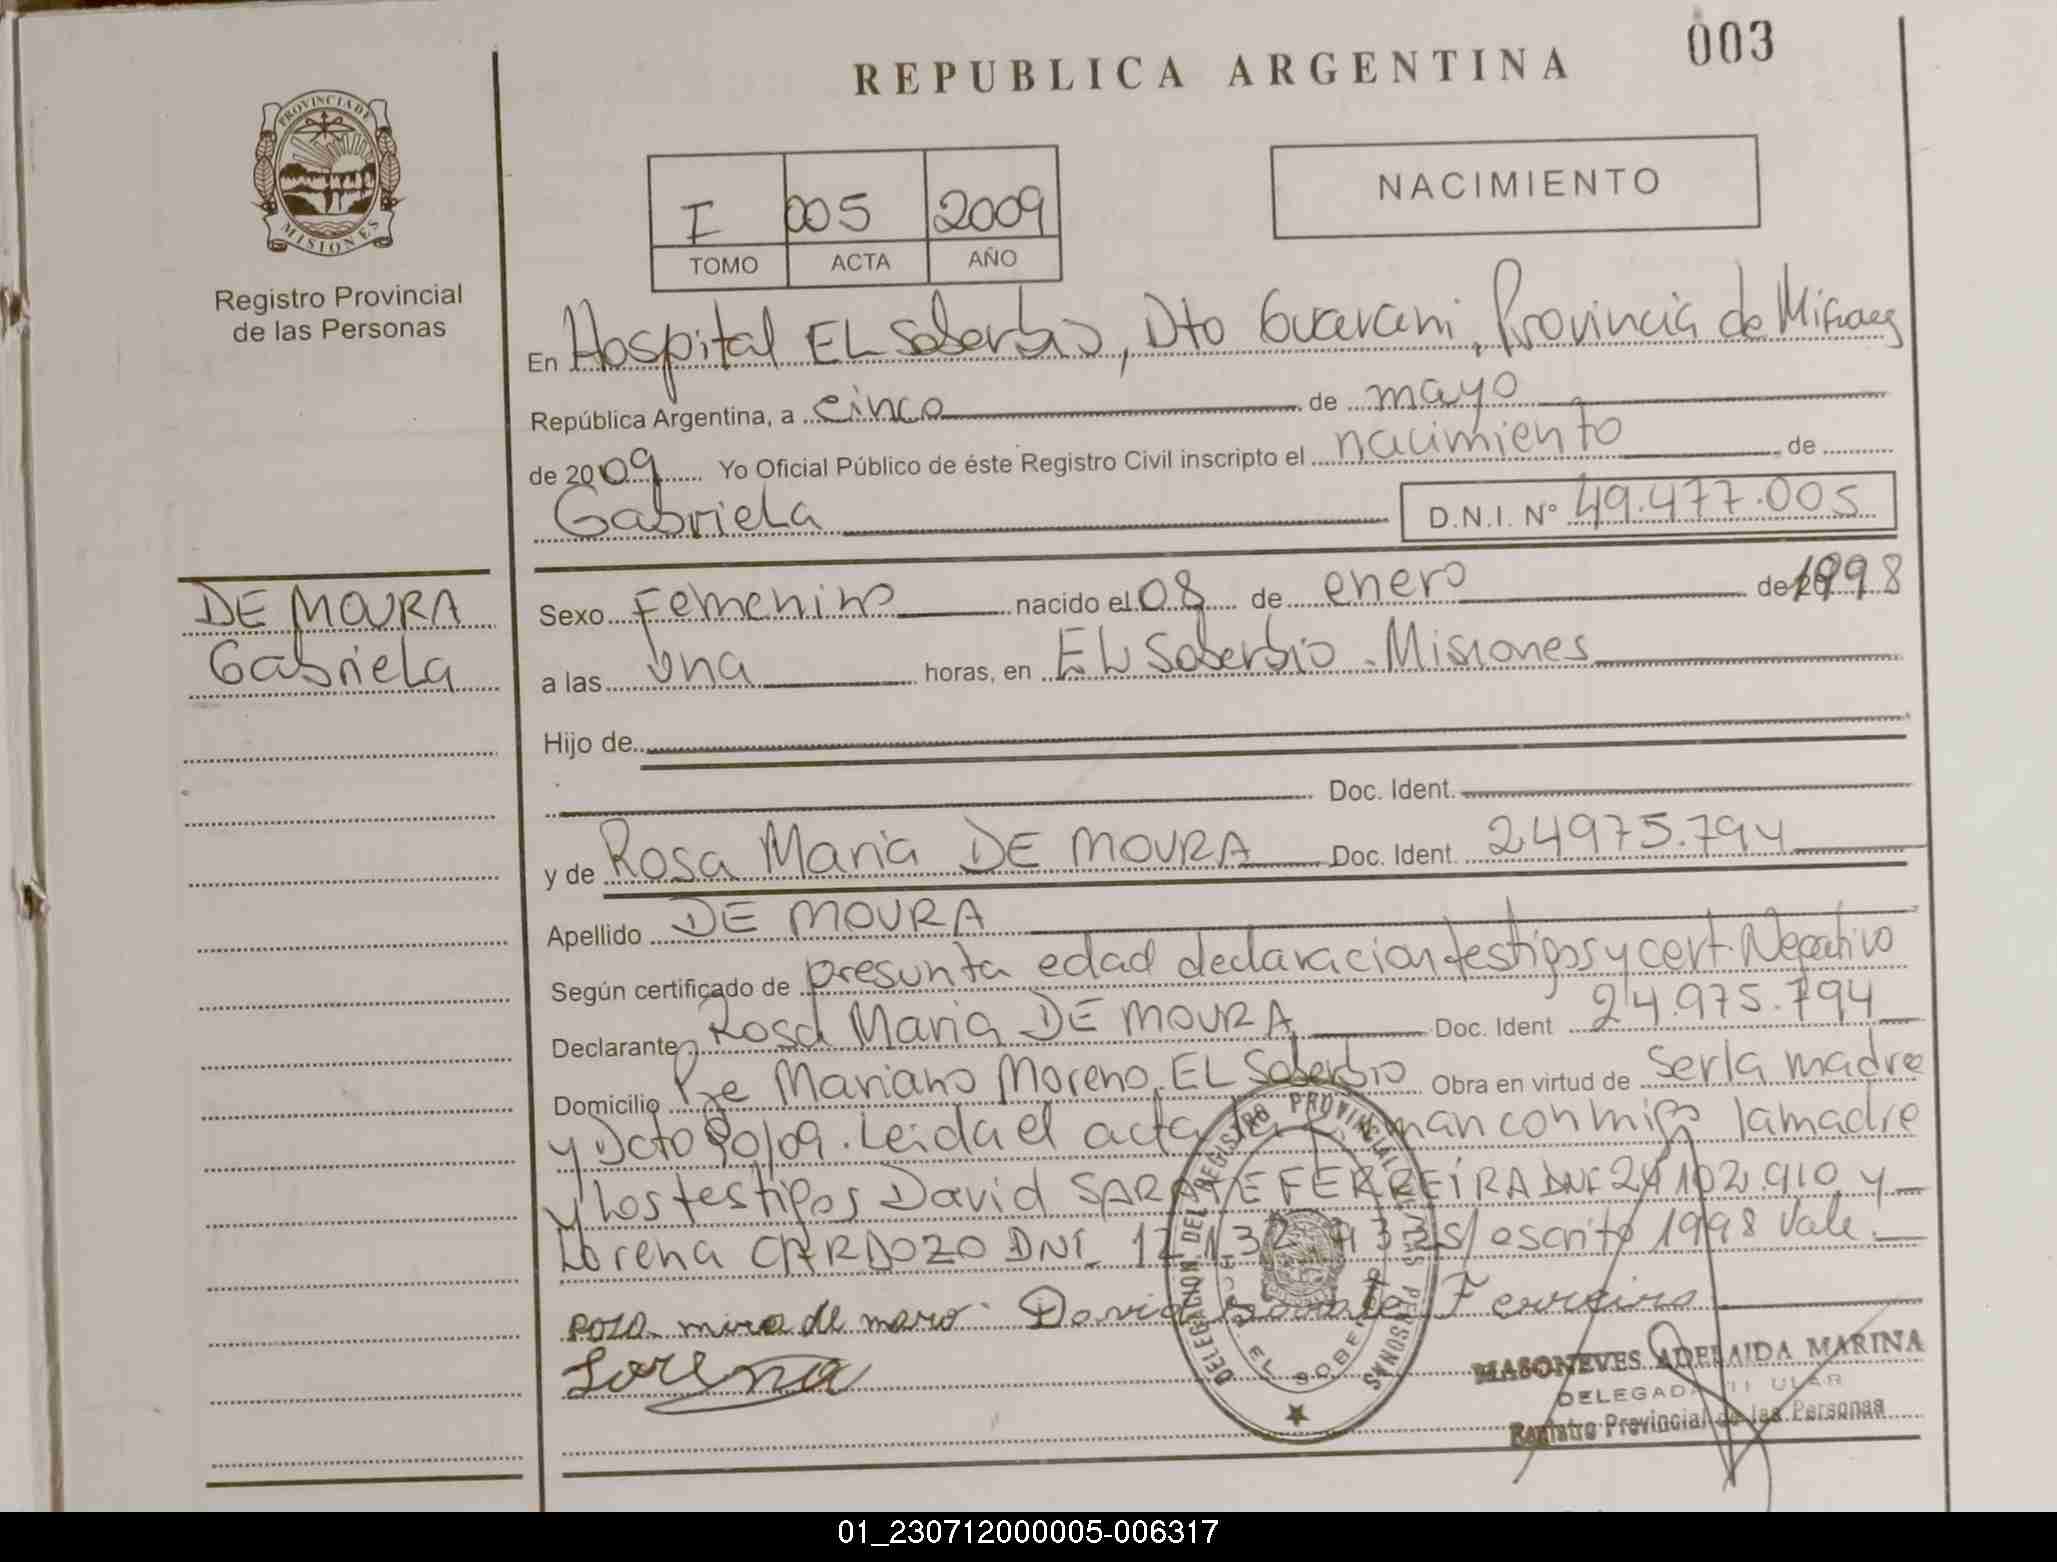 REPUBLICA ARGENTINA
003
PROVINCIA DE
MISIONES
Registro Provincial
de las Personas
I 005 2009
TOMO ACTA AÑO
NACIMIENTO
En Hospital EL Soberbio, Dto Guarani, Provincia de Misiones
República Argentina, a cinco de mayo
de 2009 Yo Oficial Público de éste Registro Civil inscripto el nacimiento de
Gabriela D.N.I. N° 49.477.005
DE MOURA
Gabriela
Sexo Femenino nacido el 08 de enero de 1998
a las una horas, en EL Soberbio - Misiones
Hijo de
Doc. Ident.
y de Rosa Maria DE MOURA Doc. Ident. 24975.794
Apellido DE MOURA
Según certificado de presunta edad declaracion testigos y cert. Negativo
Declarante Rosa Maria DE MOURA Doc. Ident 24.975.794
Domicilio Pje Mariano Moreno. EL Soberbio Obra en virtud de ser la madre
y Dcto 90/09. Leida el acta la firman conmigo la madre
y los testigos David SARATE FERREIRA DNI 24.102.910 y
Lorena CARDOZO DNI s/ escrito 1998 Vale.
David Ferreira
Lorena
DELEGACION DEL REGISTRO PROVINCIAL DE LAS PERSONAS
EL SOBERBIO
MASONEVES ADELAIDA MARINA
DELEGADA TITULAR
Registro Provincial de las Personas
01_230712000005-006317